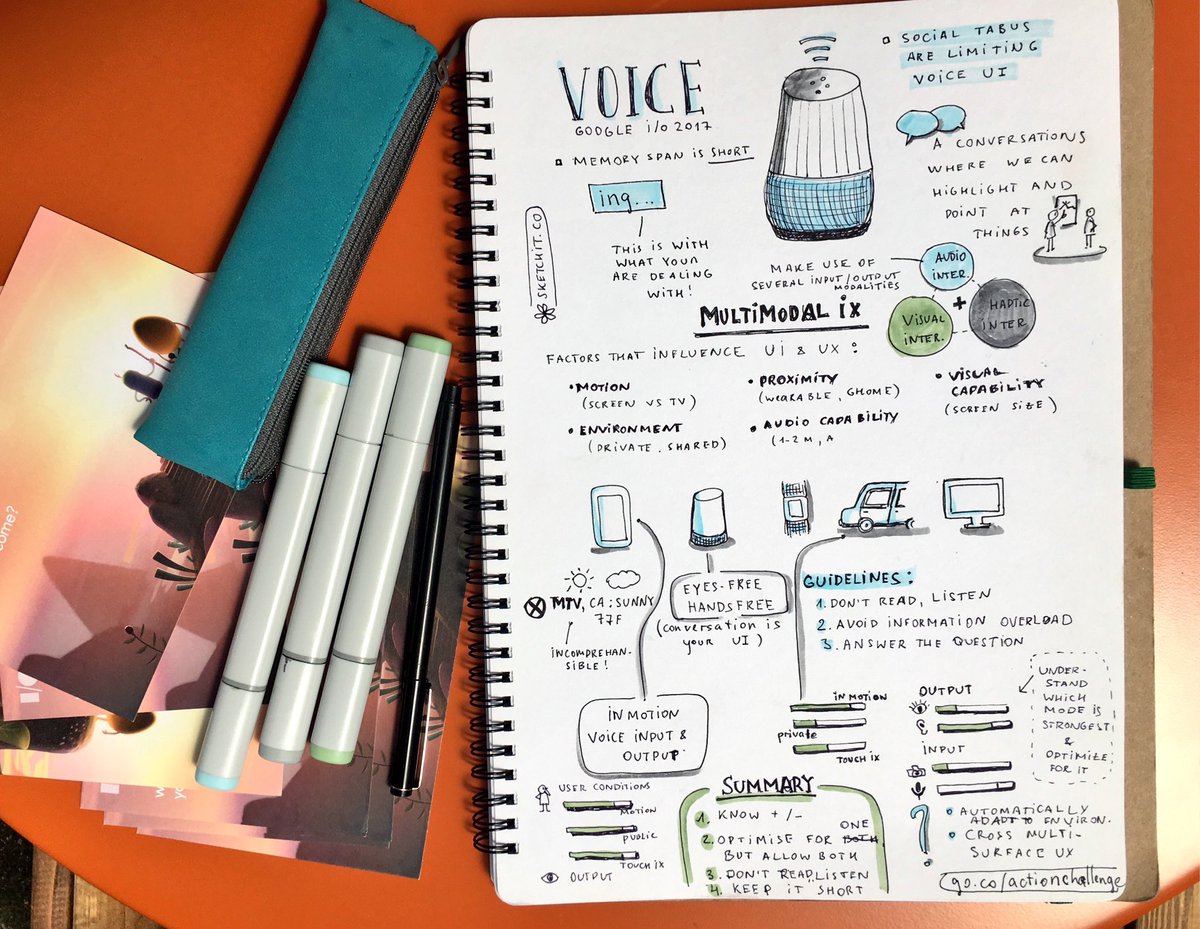 VOICE
GOOGLE i/o 2017
MEMORY SPAN IS SHORT
ing...
THIS IS WITH
WHAT YOUR
ARE DEALING
WITH!
SKETCHIT.CO
SOCIAL TABUS
ARE LIMITING
VOICE UI
A CONVERSATIONS
WHERE WE CAN
HIGHLIGHT AND
POINT AT
THINGS
MAKE USE OF
SEVERAL INPUT/OUTPUT
MODALITIES
AUDIO
INTER.
+
VISUAL
INTER.
HAPTIC
INTER
MULTIMODAL IX
FACTORS THAT INFLUENCE UI & UX:
• MOTION
(SCREEN VS TV)
• ENVIRONMENT
(PRIVATE, SHARED)
• PROXIMITY
(WEARABLE, GHOME)
• AUDIO CAPABILITY
(1-2 M, A
• VISUAL
CAPABILITY
(SCREEN SIZE)
MTV, CA: SUNNY
77F
INCOMPREHAN-
SIBLE!
EYES-FREE
HANDSFREE
(CONVERSATION IS
your UI)
GUIDELINES:
1. DON'T READ, LISTEN
2. AVOID INFORMATION OVERLOAD
3. ANSWER THE QUESTION
IN MOTION
VOICE INPUT &
OUTPUT
IN MOTION
private
TOUCH IX
OUTPUT
INPUT
UNDER-
STAND
WHICH
MODE IS
STRONGEST
&
OPTIMIZE
FOR IT
USER CONDITIONS
MOTION
public
TOUCH IX
OUTPUT
SUMMARY
1. KNOW +/-
ONE
2. OPTIMISE FOR BOTH
BUT ALLOW BOTH
3. DON'T READ, LISTEN
4. KEEP IT SHORT
?
AUTOMATICALLY
ADAPT TO ENVIRON.
CROSS MULTI-
SURFACE UX
go.co/actionchallenge
come?
I/O